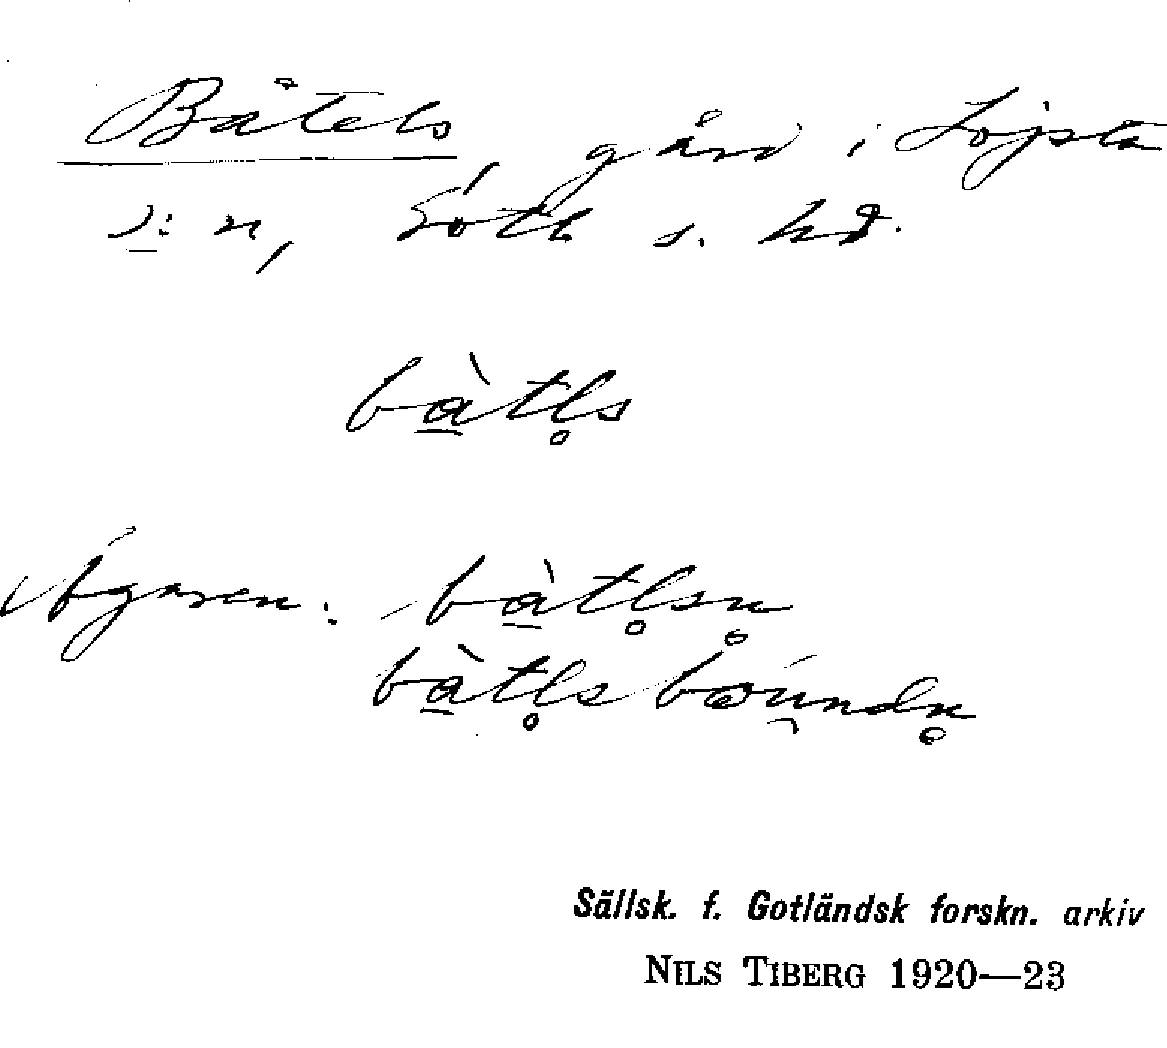 Båtels, gård i Lojsta
s:n, Goth s. hd.
bà̱tl̥s
Ägaren: - bà̱tl̥sn̥
bà̱tl̥sbou̯ndn̥
Sällsk. f. Gotländsk forskn. arkiv
NILS TIBERG 1920—23